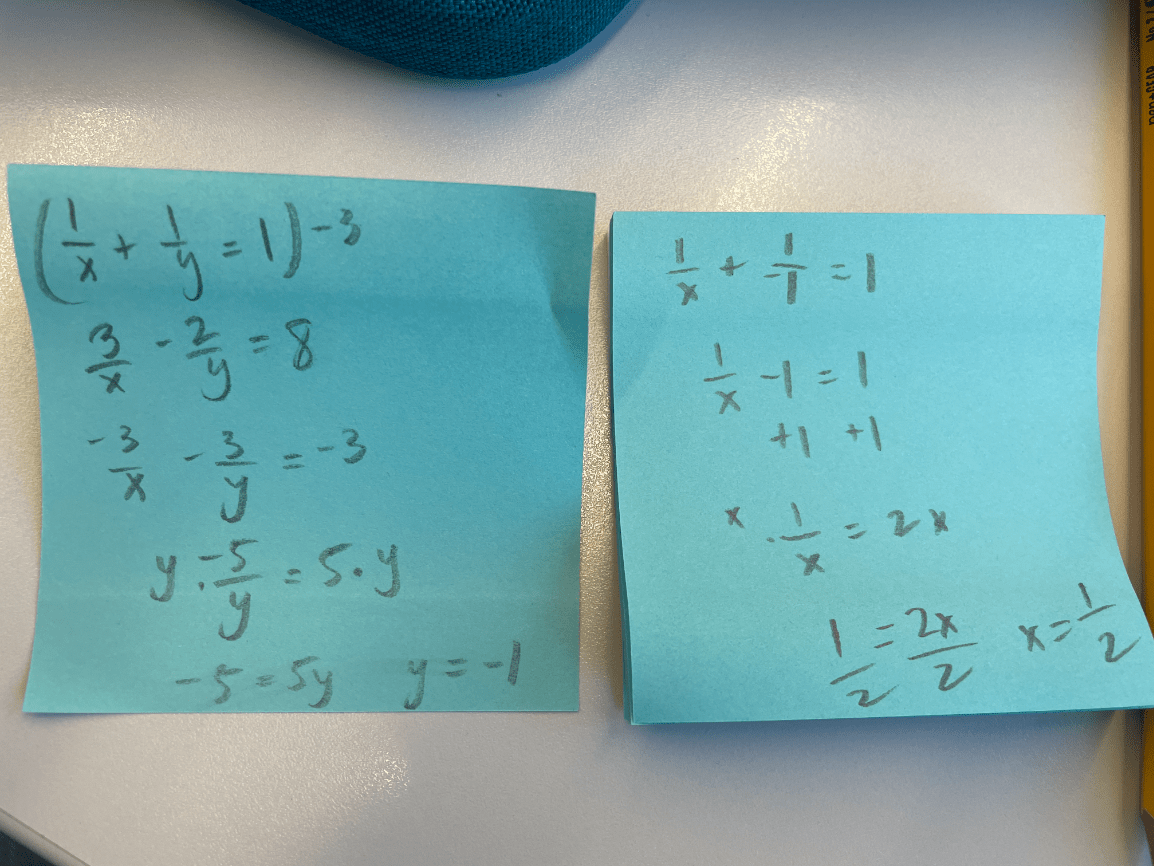 (1/x + 1/y = 1) -3
3/x - 2/y = 8
-3/x - 3/y = -3
y · -5/y = 5 · y
-5 = 5y y = -1
1/x + 1/-1 = 1
1/x - 1 = 1
+1 +1
x · 1/x = 2x
1/2 = 2x/2 x = 1/2